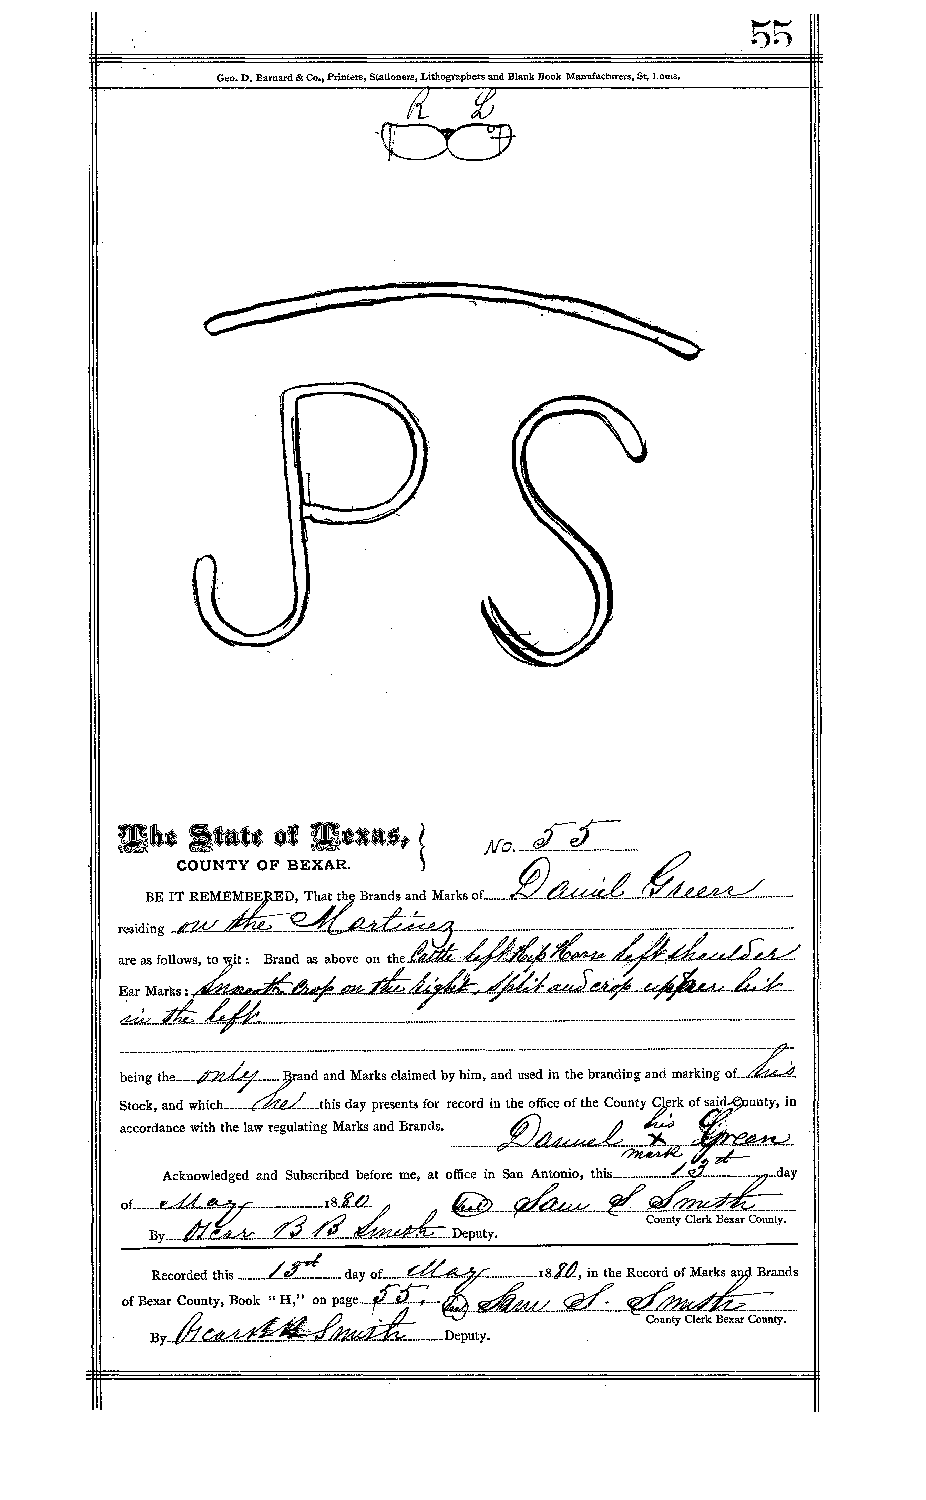 55
Geo. D. Barnard & Co., Printers, Stationers, Lithographers and Blank Book Manufacturers, St. Louis.
R L
P S
The State of Texas,
COUNTY OF BEXAR.
No. 55
BE IT REMEMBERED, That the Brands and Marks of Daniel Green
residing on the Martinez
are as follows, to wit: Brand as above on the Cattle left Hip Horse left shoulder
Ear Marks: Smooth crop on the right, split and crop upper bit
in the left
being the only Brand and Marks claimed by him, and used in the branding and marking of his
Stock, and which he this day presents for record in the office of the County Clerk of said County, in
accordance with the law regulating Marks and Brands.
Daniel his x mark Green
Acknowledged and Subscribed before me, at office in San Antonio, this 13th day
of May 1880 Sam S Smith
County Clerk Bexar County.
By Oscar B B Smith Deputy.
Recorded this 13th day of May 1880, in the Record of Marks and Brands
of Bexar County, Book "H," on page 55. Sam S. Smith
County Clerk Bexar County.
By Oscar Smith Deputy.